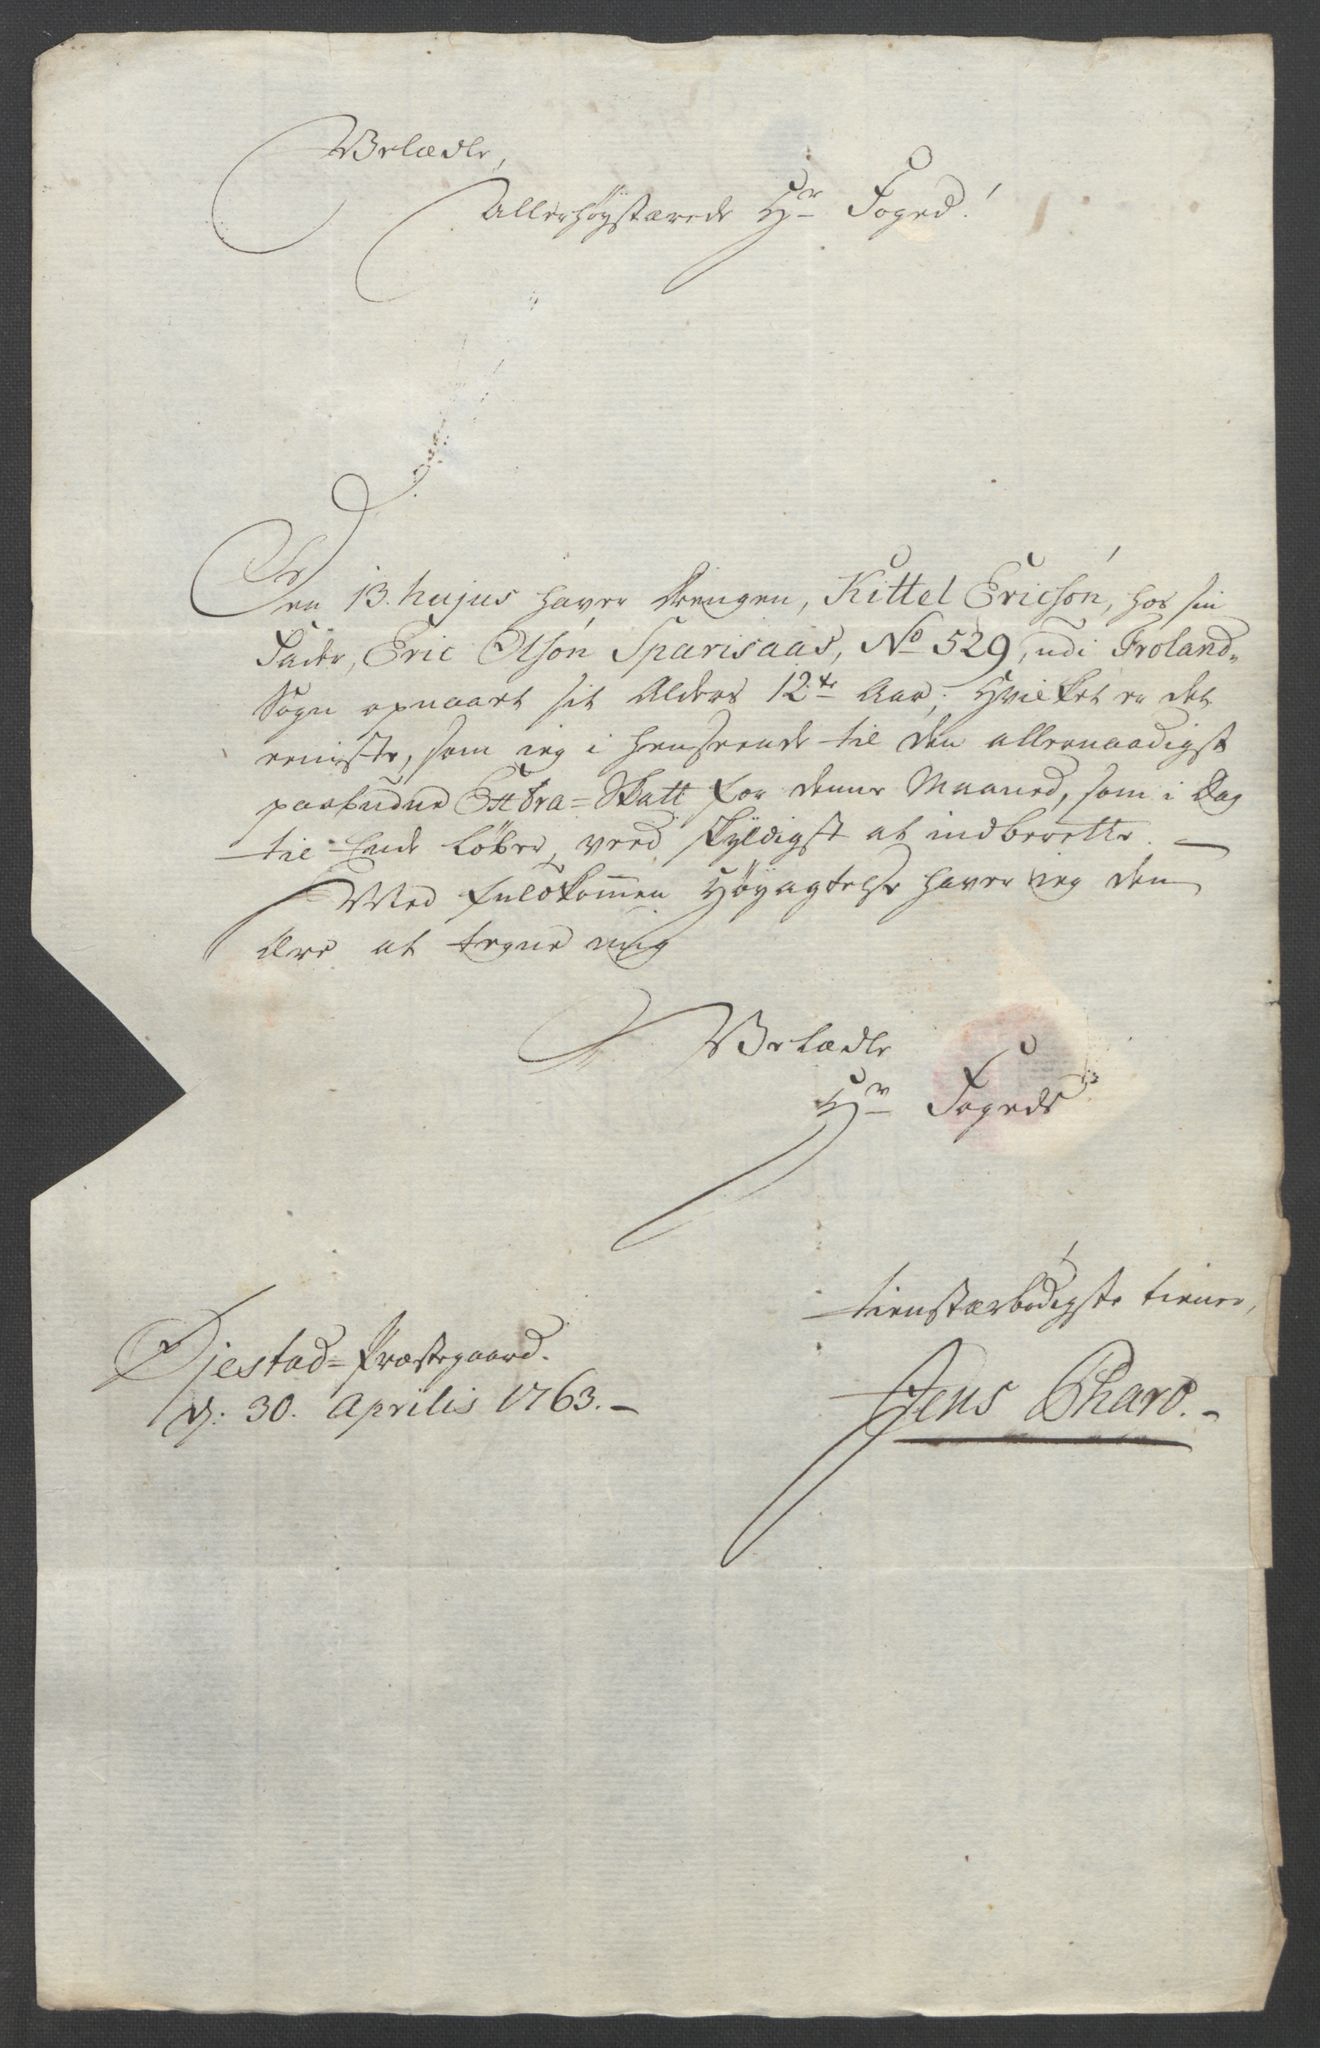 Velædle,
Allerhøystærede Hr Foged!
Den 13. hujus haver Drengen, Kittel Ericsøn, hos sin
Fader, Eric Olsøn Sparisaas, No 529, udi Froland-
Sogn opnaaet sit Alders 12te Aar; Hvilket er det
eeniste, som ieg i henseende til den allernaadigst
paabudne Extra-Skatt for denne Maaned, som i Dag
til Ende løber, veed skyldigst at indberette. –
Med fuldkommen Høyagtelse haver ieg den
Ære at tegne mig
Velædle
Hr Fogeds
tienstærbødigste tiener,
Øjestad-Præstegaard.
d: 30. Aprilis 1763. –
Jens Pharo. –